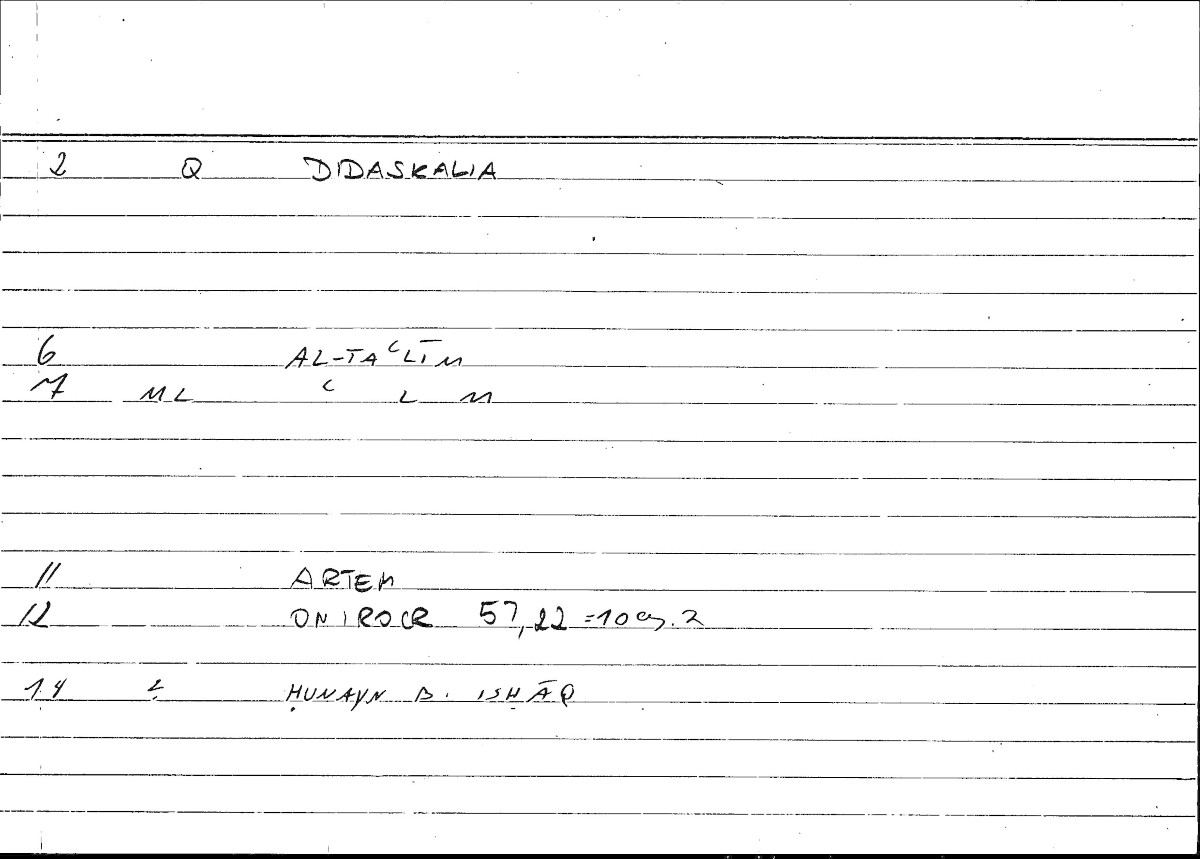 2 Q DIDASKALIA
6 AL-TAʿLĪM
7 ML ʿ L M
11 ARTEM
12 ONIROCR 57,22 =109,2
14 ḤUNAYN B. ISḤĀQ